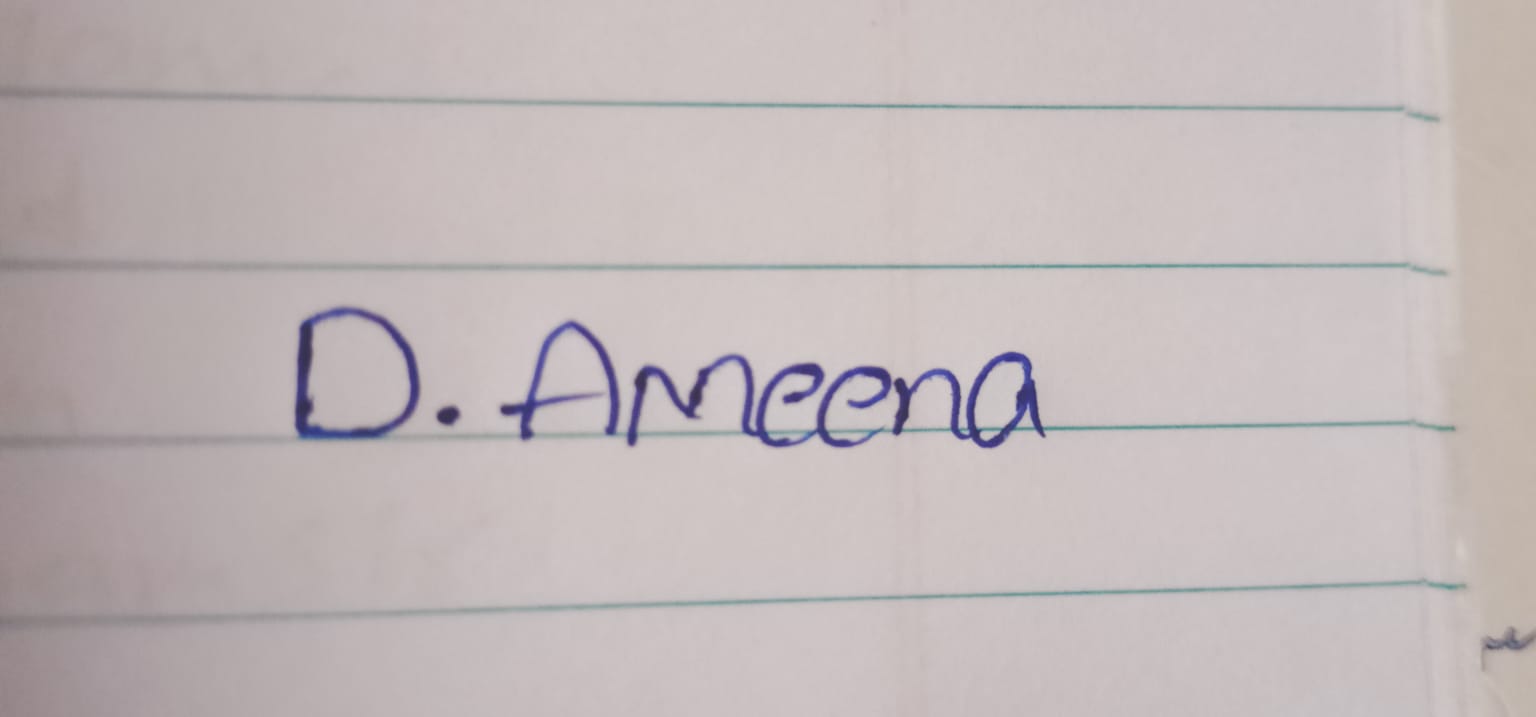 D. Ameena